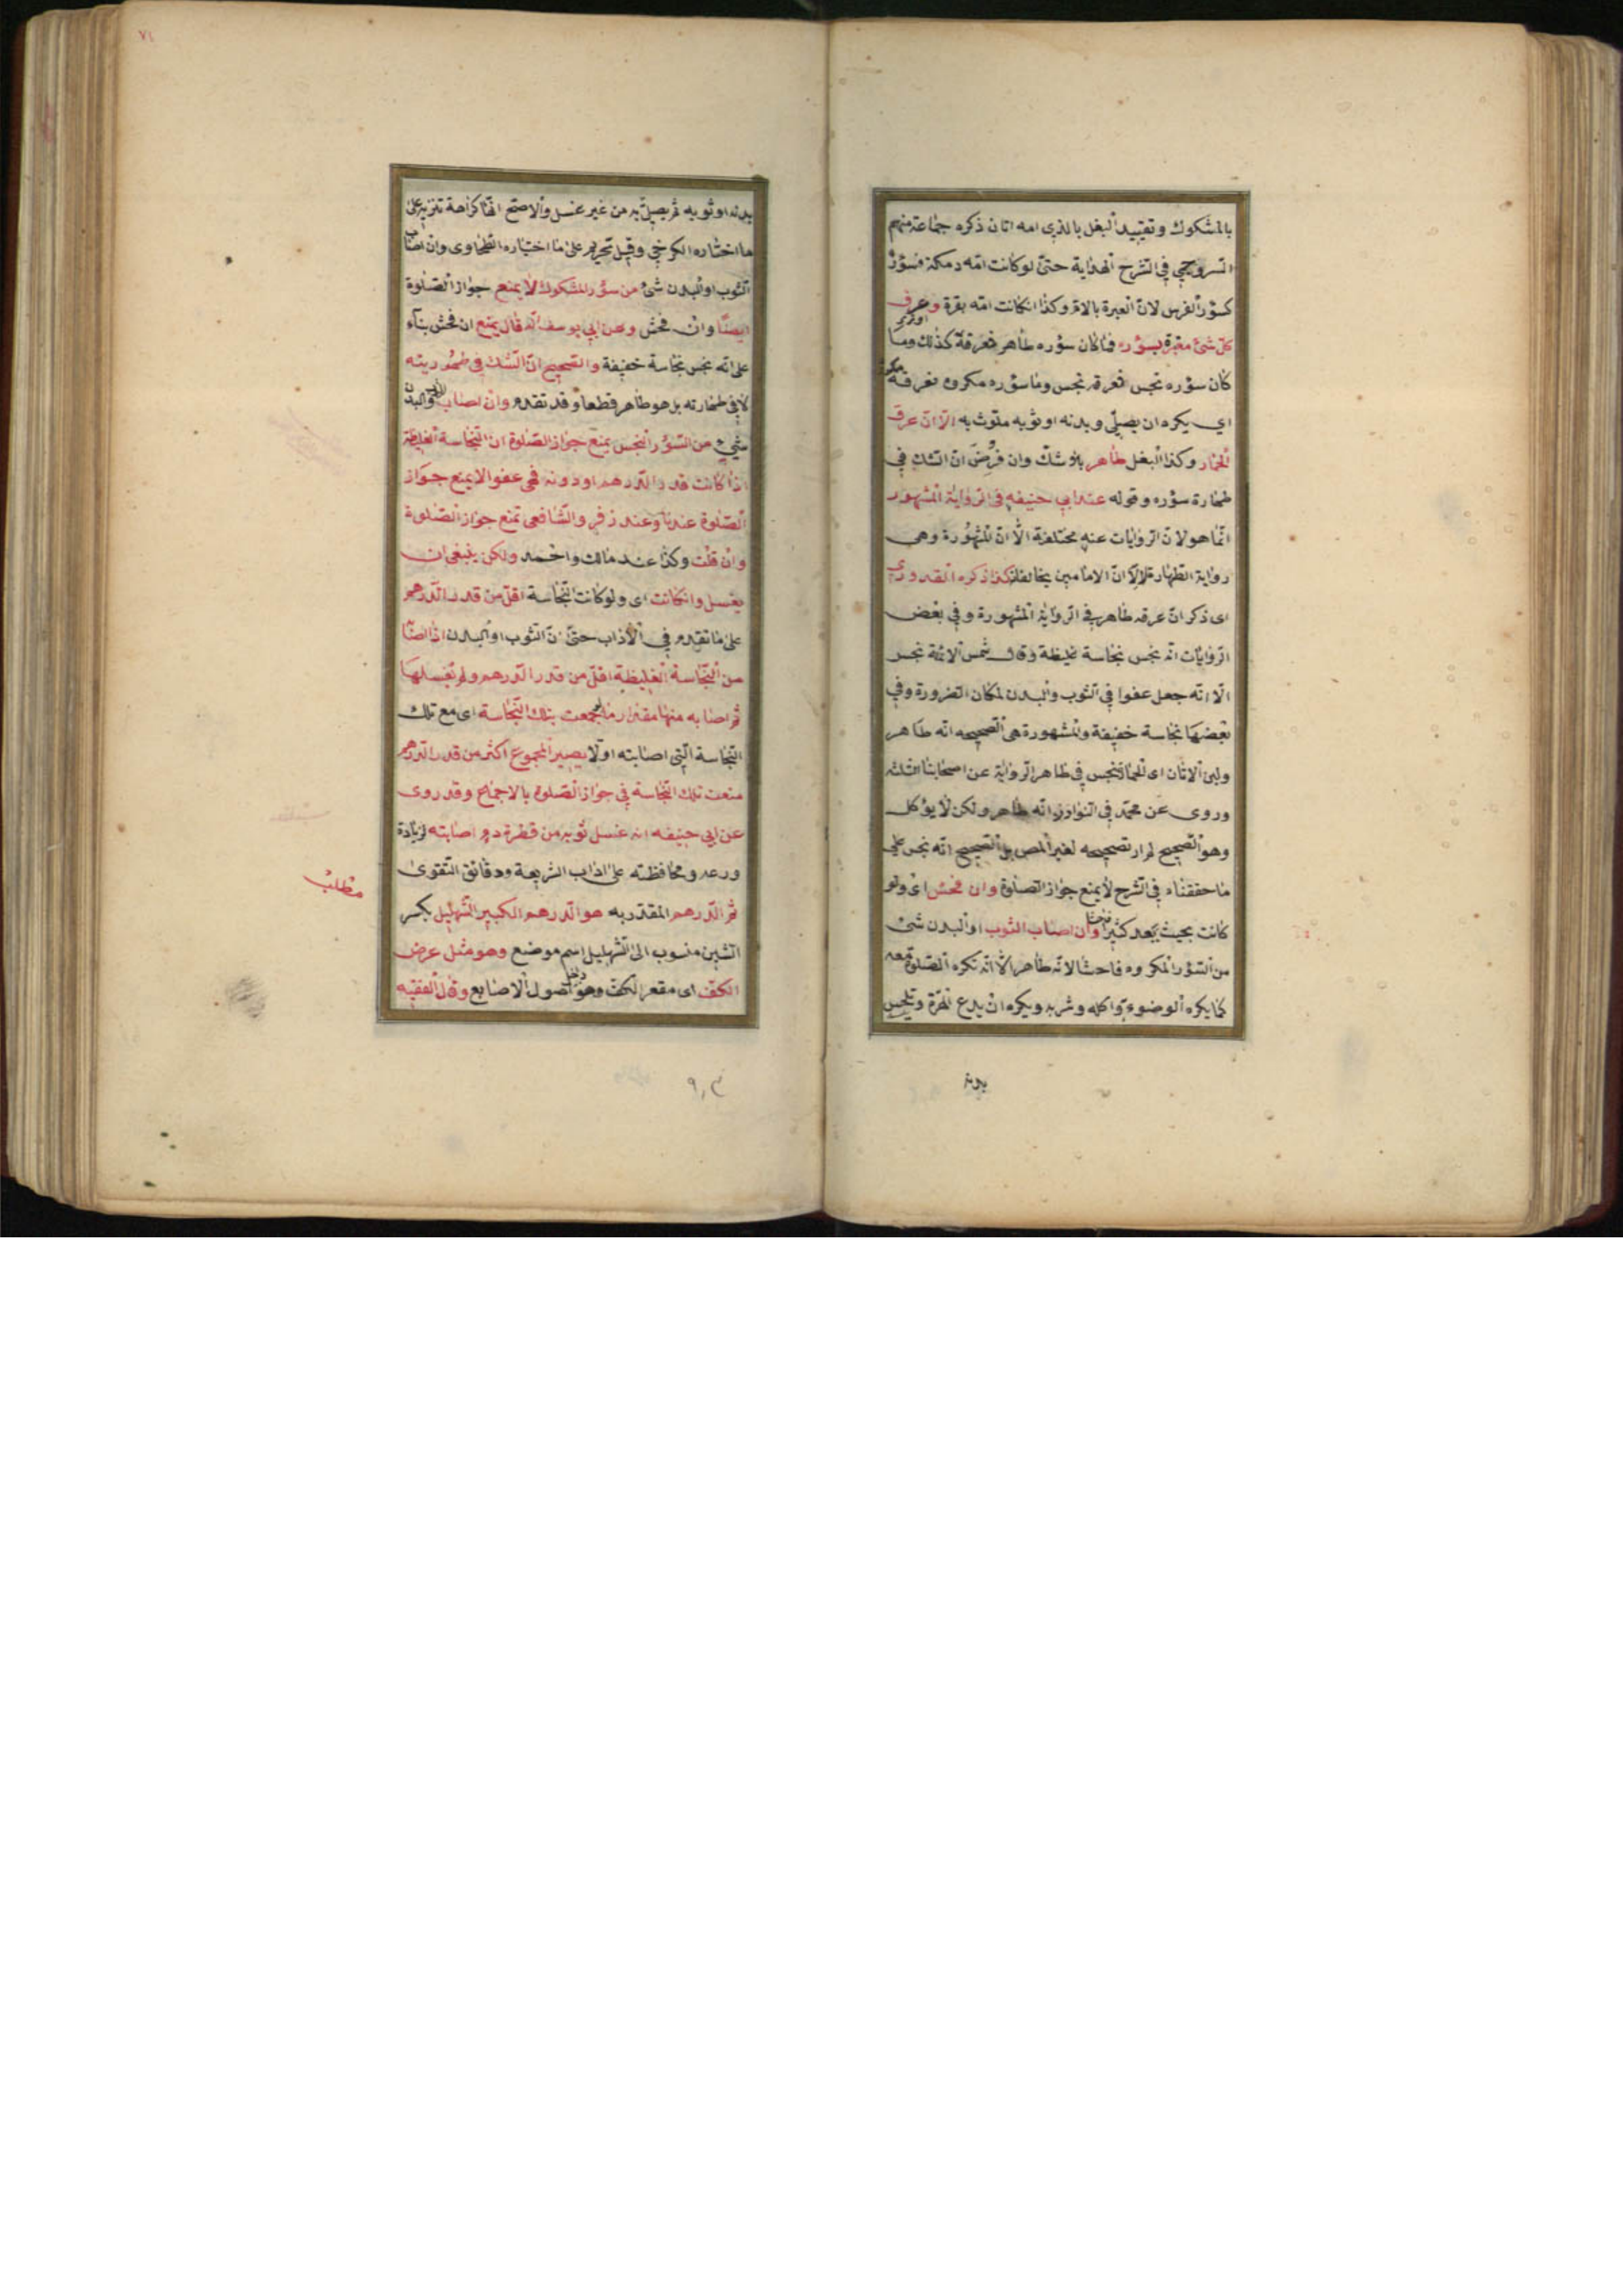 بالمشكوك وتقييد البغل بالذى امه اتان ذكره جماعة منهم
السروجي في الشرح الهداية حتى لو كانت امه رمكة فسؤره
كسؤر الفرس لان العبرة بالام وكذا ان كانت امه بقرة وعرق
كل شئ معتبرة بسؤره فما كان سؤره طاهر فعرقة كذلك وما
كان سؤره نجس فعرقه نجس وما سؤره مكروه فعرقه مكروه
اي يكره ان يصلي وبدنه او ثوبه ملوث به الا ان عرق
الحمار وكذا البغل طاهر بلا شك وان فرض ان الشك في
طهارة سؤره وقوله عند ابي حنيفه في الرواية المشهور
انما هو لان الروايات عنه مختلفة الا ان المشهورة وهى
رواية الطهارة لا ان الامامين يخالفان كذا ذكره القدوري
اى ذكر ان عرقه طاهر في الرواية المشهورة وفي بعض
الروايات انه نجس نجاسة غليظة وقال شمس الائمة نجس
الا انه جعل عفوا في الثوب والبدن لمكان الضرورة وفي
بعضها نجاسة خفيفة والمشهورة هي الصحيحه انه طاهر
ولبن الاتان اى للحمارة نجس في ظاهر الرواية عن اصحابنا الثلثه
وروى عن محمد في النوادر انه طاهر ولكن لا يؤكل
وهو الصحيح لم ار تصحيحه لغير المص بل الصحيح انه نجس على
ما حققناه في الشرح لا يمنع جواز الصلوة وان فحش اى ولو
كانت بحيث يعد كثيرا فاحشا وان اصاب الثوب او البدن شئ
من السؤر المكروه فاحشا لانه طاهر الا انه تكره الصلوة معه
كما يكره الوضوء به واكله وشربه ويكره ان يدع الهرة وتلحس
بدنه
٧١
بدنه او ثوبه ثم يصلي به من غير غسل والاصح انها كراهة تنزيه على
ما اختاره الكرخي وقيل تحريم على ما اختياره الطحاوى وان اصاب
الثوب او البدن شئ من سؤر المشكوك لا يمنع جواز الصلوة
ايضا وان فحش وعن ابي يوسف انه قال يمنع ان فحش بناء
على انه نجس نجاسة خفيفة والصحيح ان الشك في طهوريته
لا في طهارته بل هو طاهر قطعا وقد تقدم وان اصاب الثوب والبدن
شئ من السؤر النجس يمنع جواز الصلوة ان النجاسة الغليظة
اذا كانت قدر الدرهم او دونه فهي عفو لا يمنع جواز
الصلوة عندنا وعند زفر والشافعى تمنع جواز الصلوة
وان قلت وكذا عند مالك واحمد ولكن ينبغى ان
يغسل وان كانت اى ولو كانت النجاسة اقل من قدر الدرهم
على ما تقدم في الآداب حتى ان الثوب او البدن اذا اصابه
من النجاسة الغليظة اقل من قدر الدرهم ولم يغسلها
ثم اصابه منها مقدار ما لو جمعت بتلك النجاسة اى مع تلك
النجاسة التي اصابته اولا يصير المجموع اكثر من قدر الدرهم
منعت تلك النجاسة في جواز الصلوة بالاجماع وقد روى
عن ابي حنيفه انه غسل ثوبه من قطرة دم اصابته لزيادة
ورعه ومحافظته على اداب الشريعة ودقائق التقوى
ثم الدرهم المقدر به هو الدرهم الكبير الشهليل بكسر
الشين منسوب الى الشهليل اسم موضع وهو مثل عرض
الكف اى مقعر الكف وهو داخل اصول الاصابع وقال الفقيه
مطلب